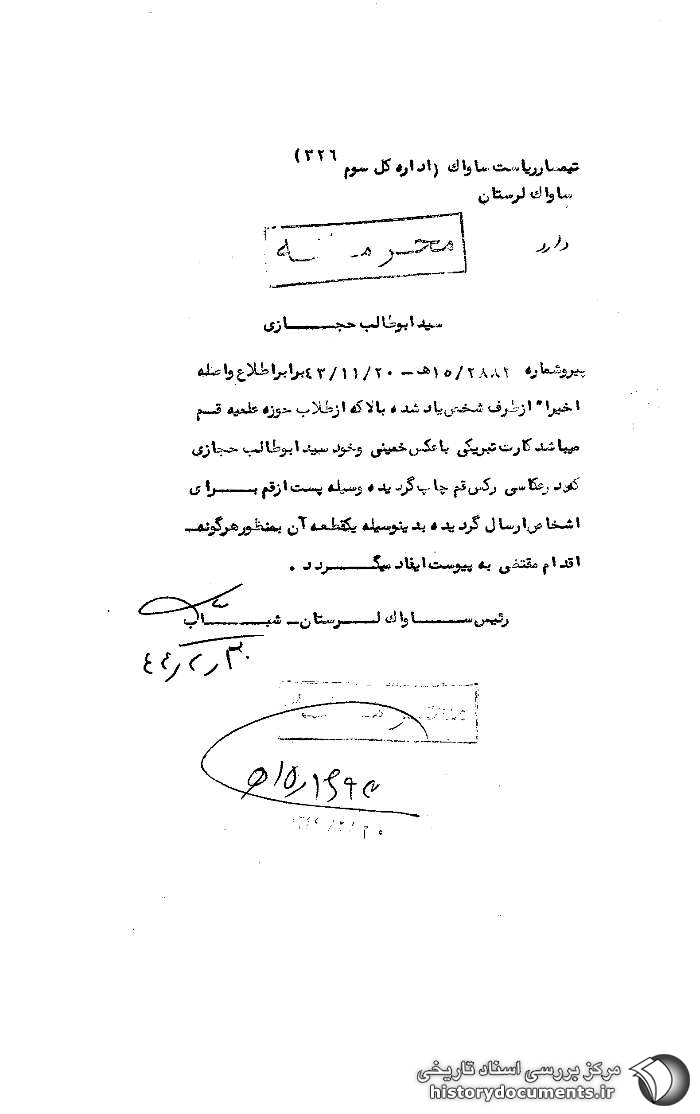 تیمسار ریاست ساواك (اداره کل سوم ۳۲۶)
ساواك لرستان
دارد
محرمانه
سید ابوطالب حجازی
پیرو شماره ۱۵/۲۸۸۲هـ - ۴۳/۱۱/۲۰ برابر اطلاع واصله
اخیرا" از طرف شخص یاد شده بالا که از طلاب حوزه علمیه قم
میباشد کارت تبریکی با عکس خمینی و خود سید ابوطالب حجازی
که در عکاسی رکس قم چاپ گردیده وسیله پست از قم برای
اشخاص ارسال گردیده بدینوسیله یکقطعه آن بمنظور هرگونه
اقدام مقتضی به پیوست ایفاد میگردد .
رئیس ساواك لرستان - شباب
۴۴/۲/۳۰
مرکز بررسی اسناد تاریخی
historydocuments.ir